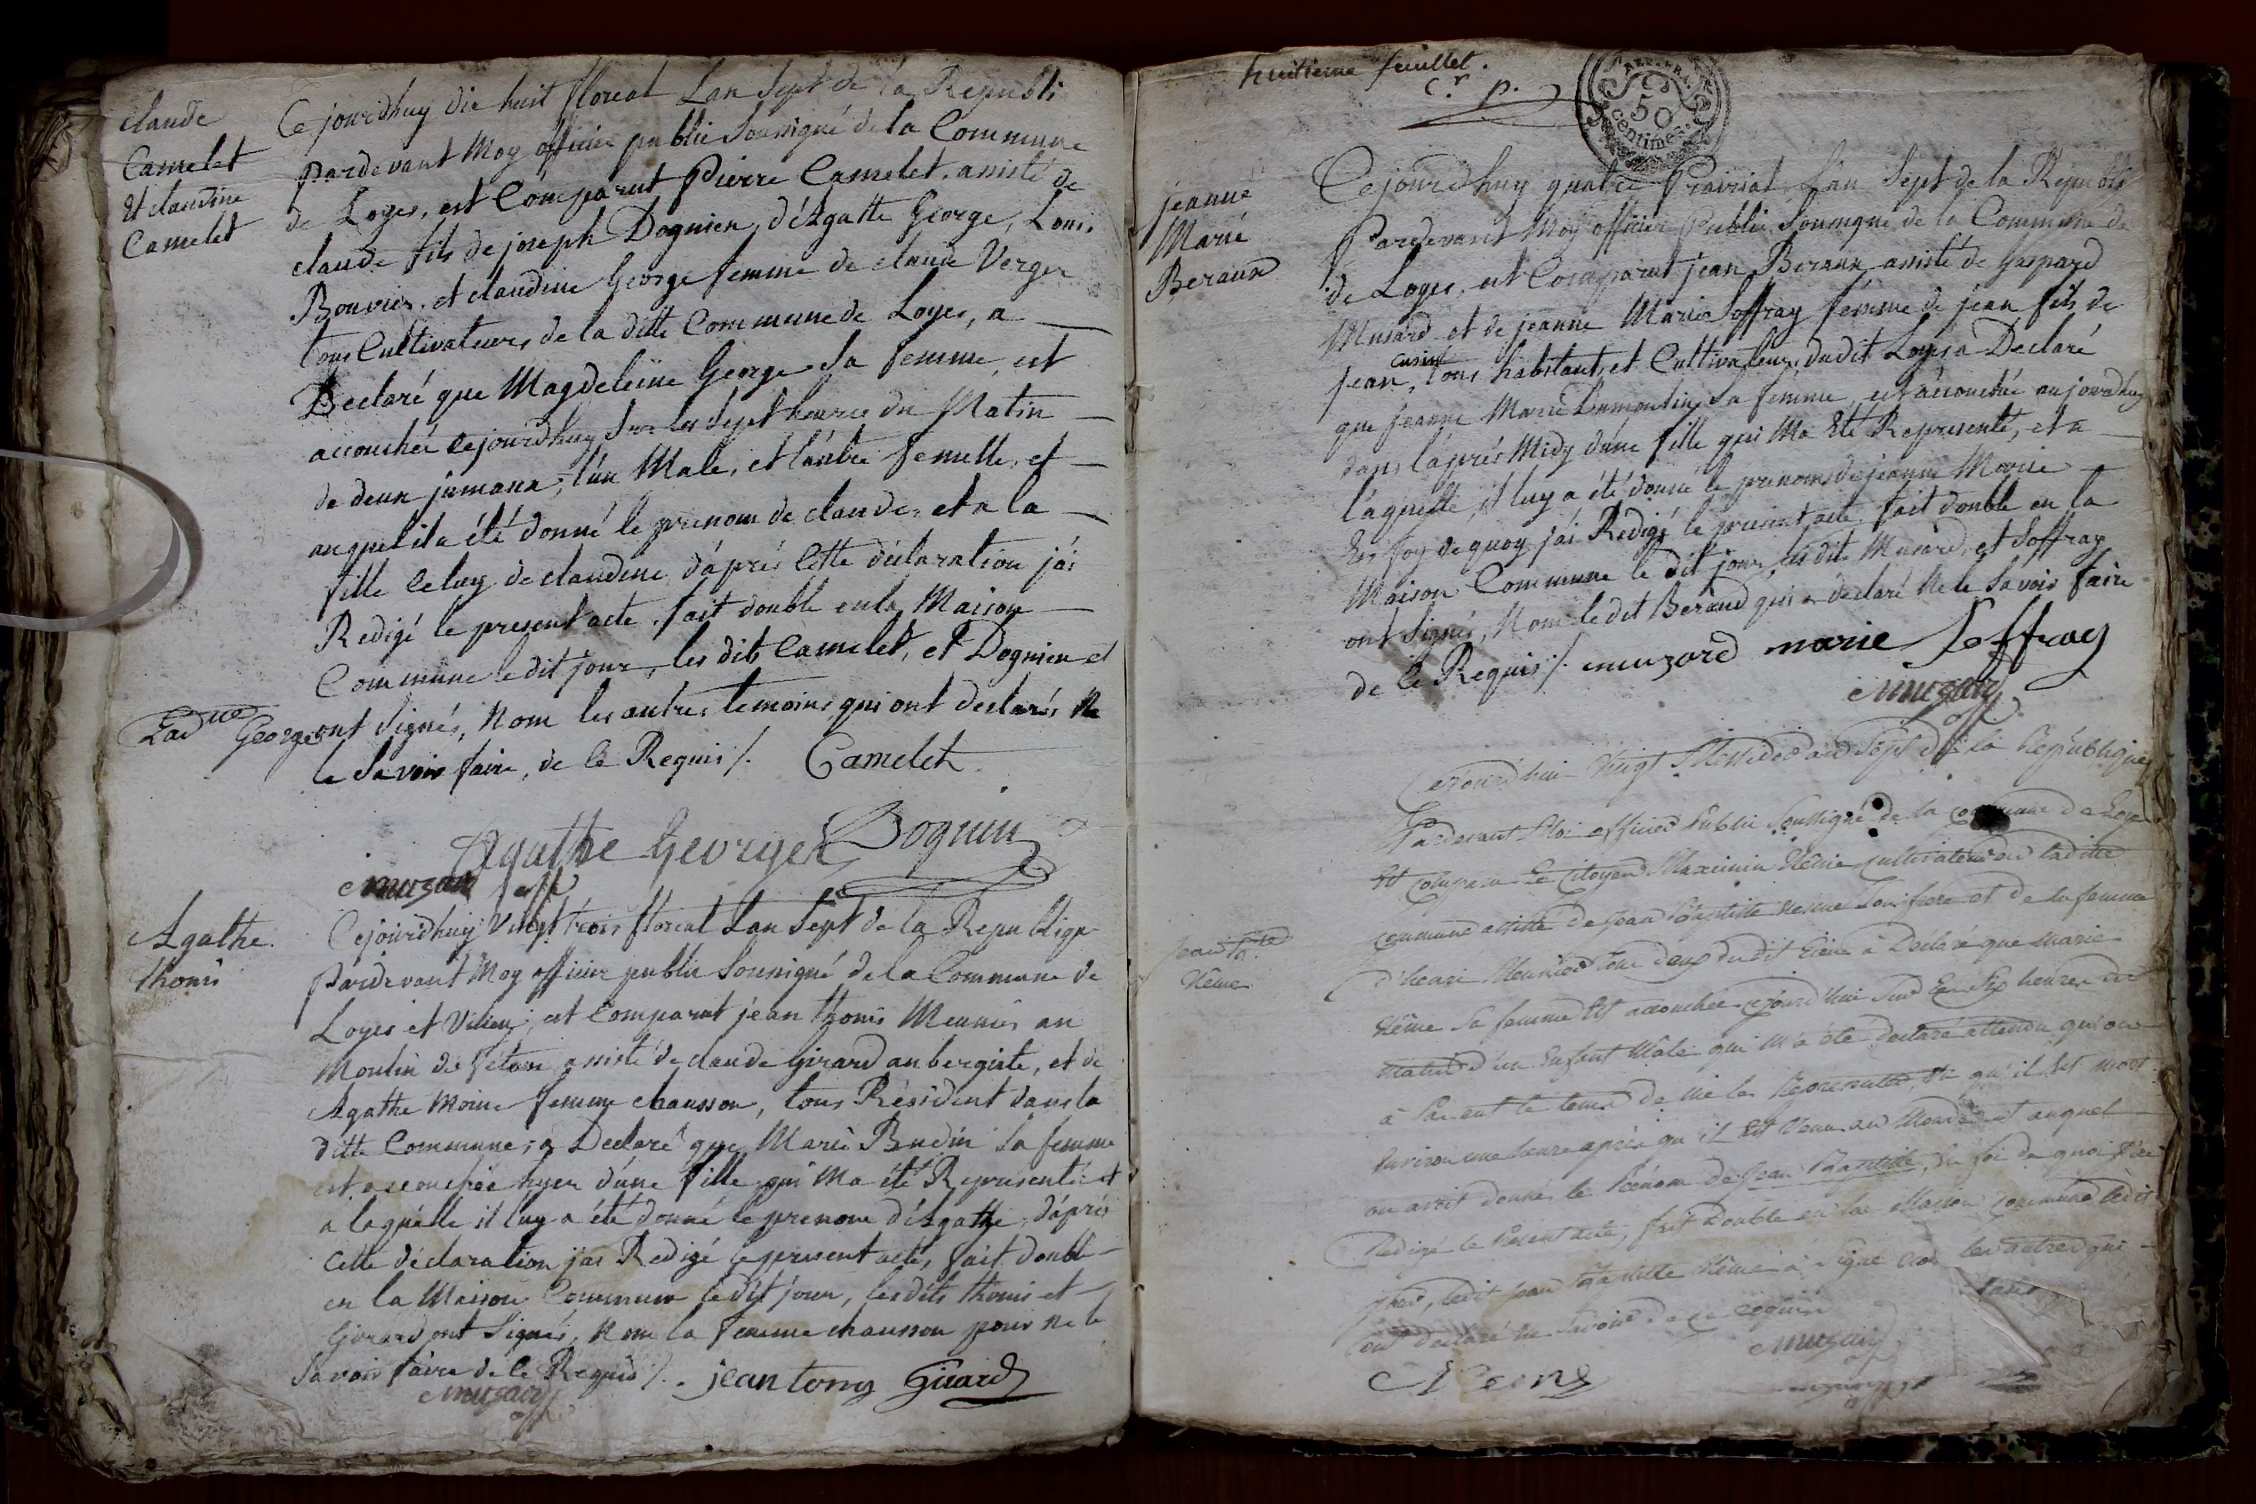 claude
Camelet
Et claudine
Camelet
Cejourdhuy dix huit floreal Lan Sept de la Republi
Pardevant Moy officier public Soussigné de la Commune
de Loyes, est Comparut Pierre Camelet, assisté de
claude fils de joseph Dognien, d'Agatte George, Louis
Bouvier, et claudine George femme de claude Verger
tous Cultivateurs de la ditte Commune de Loyes, a
Declaré que Magdeleine George Sa femme, est
accouchée cejourdhuy Sur les Sept heures du Matin
de deux jumaux, l'un Male, et l'autre femelle, et
auquel il a été donné le prenom de claude, et a la
fille Celuy de claudine, d'aprés Cette déclaration j'ai
Redigé le present acte, fait double en la Maison
Commune le dit jour, les dits Camelet, et Dognien et
Lad. George ont Signés, Nom les autres temoins qui ont declarés Ne
le Savoir faire, de Ce Requis /. Camelet
Agathe George Dognin
muzard off
Agathe
thonis
Cejourdhuy Vingt trois floreal Lan Sept de la Republique
Pardevant Moy officier public Soussigné de la Commune de
Loyes et Vilieu, est Comparut jean thonis Meunier au
Moulin de assisté de claude Girard aubergiste, et de
Agathe Moine femme chausson, tous Résident dans la
ditte Commune, a Declaré que Marie Budin Sa femme
est accouchée hyer d'une fille qui Ma été Representé et
a laquelle il luy a été donné le prenom d'Agathe, d'aprés
Cette déclaration jai Redigé le present acte, fait double
en la Maison Commune le dit jour, les dits thonis et
Girard ont Signés, Nom la femme chausson pour Ne le
Savoir faire de Ce Requis /. jean tony Girard
muzard off
huitieme feuillet.
C.r P.
REP. FRA.
50
centimes.
jeanne
Marie
Beraud
Cejourdhuy quatre Prairial Lan Sept de la Republi
Pardevant Moy officier Public Soussigné de la Commune de
de Loyes, est Comparut jean Beraud assisté de Gaspard
Musard et de jeanne Marie Soffray femme de jean fils de
jean, tous habitants et Cultivateurs dudit Loyes a Declaré
que jeanne Marie Dumoulin Sa femme, est accouchée aujourdhuy
dans l'aprés Midy d'une fille qui Ma Eté Representé, et a
laquelle, il luy a été donné le prenom de jeanne Marie
En foy de quoy jai Redigé le present acte fait double en la
Maison Commune le dit jour, les dits Musard, et Soffray
ont Signés, Nom le dit Beraud qui a declaré Ne le Savoir faire
de Ce Requis /. muzard marie Soffray
muzard
off
jean B.te
Néme
Cejourd'hui Vingt Messidor an Sept de la République
Pardevant Moi officier Public Soussigné de la commune de Loye
Est Comparu Le Citoyen Maximin cultivateur de laditte
commune assisté de Jean Baptiste Son frere et de la femme
d'henri tous deux dudit lieu a Declaré que Marie
Sa femme Est accouchée cejourd'hui Sur les Six heures du
matin d'un Enfant Mâle qui M'a été declaré attendu qu'on
a Pas eut le tems de me le Representer, vu qu'il Est mort
Environ une heure après qu'il Est Venu au Monde et auquel
on avoit donné le Prénom de Jean Baptiste, En foi de quoi J'ai
Redigé le Présent acte, fait Double en la Maison commune ledit
jour, ledit Jean Baptiste a signé non les autres qui
ont declaré ne Savoir de ce requis
muzard